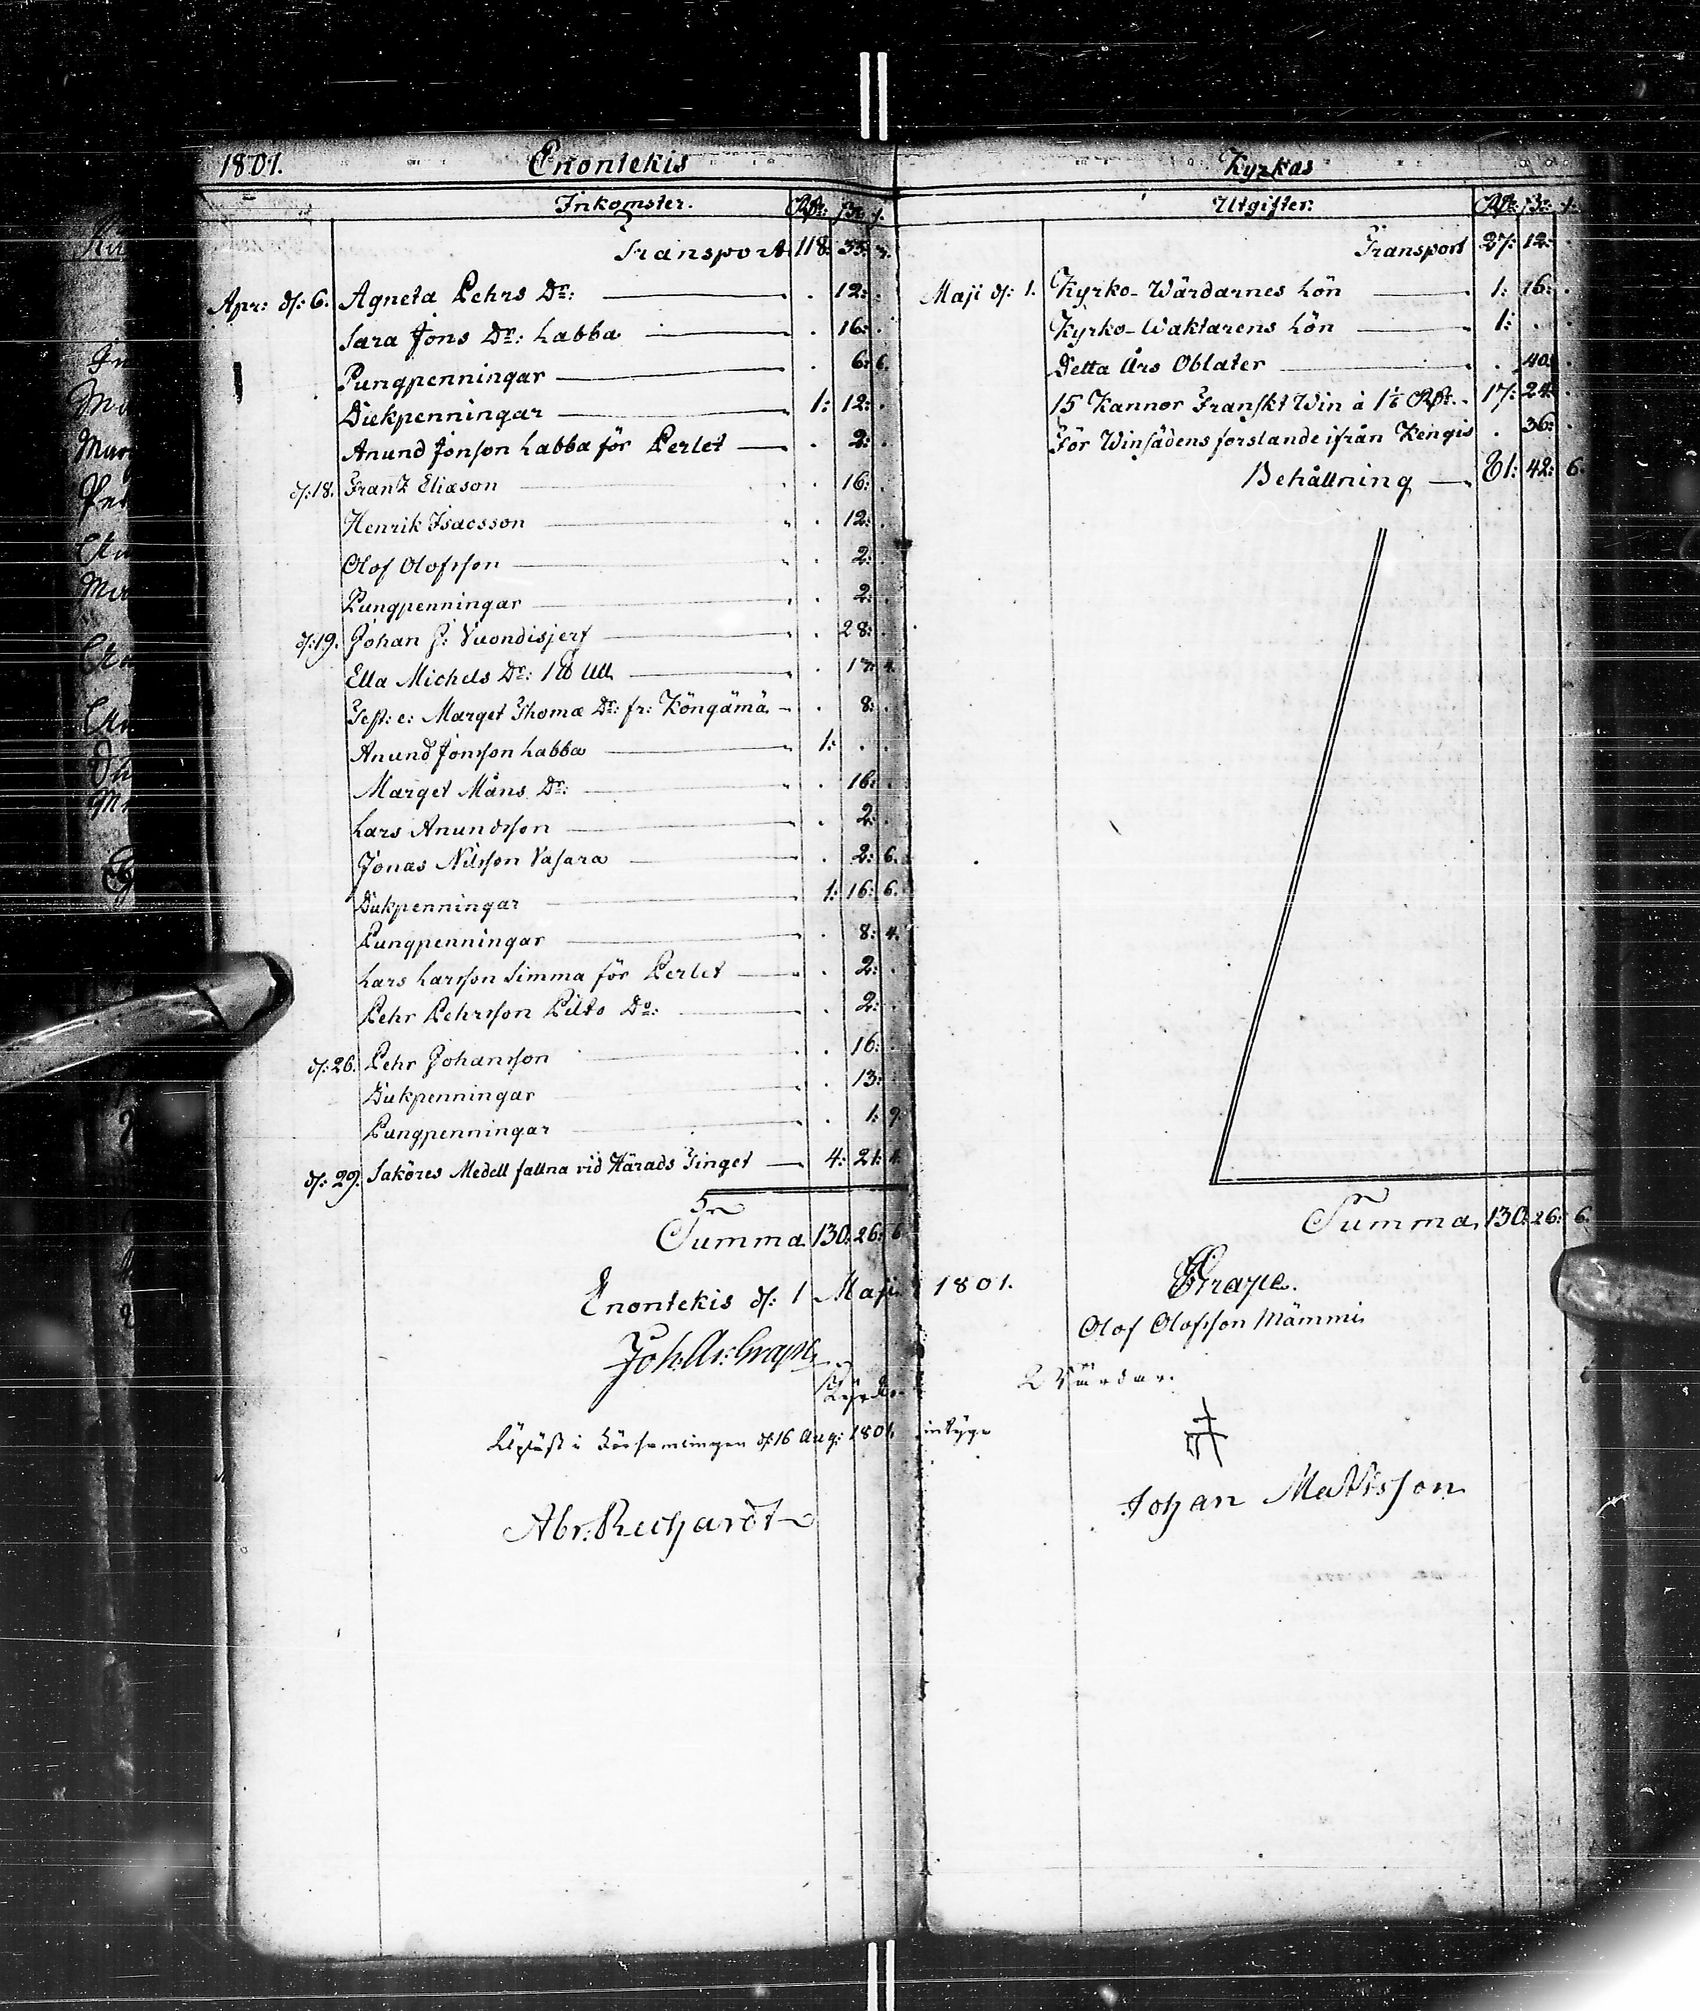 1801. Enontekis
Inkomster. Rdr: ß: r.
Transport 118: 33:
Apr: d: 6. Agneta Pehrs Dr: . 12: .
Sara Jons Dr: Labba . 16: .
Pungpenningar . 6: 6.
Diekpenningar 1: 12: .
Anund Jonson Labba för Perlet . 2: .
d: 18. Frantz Eliason . 16: .
Henrik Isacsson . 12: .
Olof Olofsson . 2: .
Pungpenningar . 2: .
d: 19. Johan J: Vuondisjerf . 28: .
Ella Michels Dr: 1 ℔ Ull . 17: 4.
Test: e: Marget Thomæ Dr: fr: Köngämä . 8: .
Anund Jonsson Labba 1: . .
Marget Måns Dr: . 16: .
Lars Anundsson . 2: .
Jonas Nilsson Vasara . 2: 6.
Dukpenningar 1: 16: 6.
Pungpenningar . 8: 4.
Lars Larsson Simma för Perlet . 2: .
Pehr Pehrsson Pilto Do: . 2: .
d: 26. Pehr Johansson . 16: .
Dukpenningar . 13: .
Pungpenningar . 1: 9.
d: 29. Saköres Medell fallna vid Härads Tinget 4: 21: 4.
Summa 130: 26: 6.
Enontekis d: 1 Maji 1801.
Joh: Ar: Grape
Upläst i Församlingen d: 16 Aug: 1801. intyga
Abr: Rechardt
Kyrkas
Utgifter: Rdr: ß: r.
Transport 27: 12: .
Maji d: 1. Kyrko-Wärdarnes Lön 1: 16: .
Kyrko-Waktarens Lön 1: . .
Detta Års Oblater . 40: .
15 Kannor Franskt Win à 1 1/6 Rdr. 17: 24: .
För Winsädens forslande ifrån Kengis . 36: .
Behållning 81: 42: 6.
Summa 130: 26: 6.
E: Grape.
Olof Olofsson Mämmi
Johan Mattsson